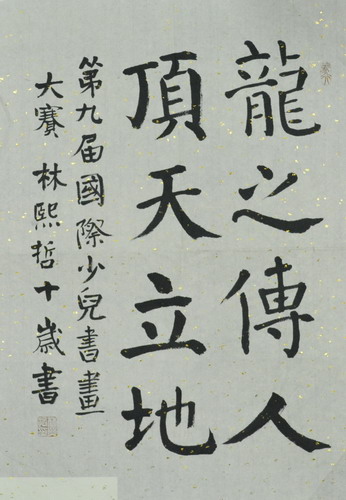 龍之傳人
頂天立地
第九届國際少兒書畫
大賽 林熙哲十歲書